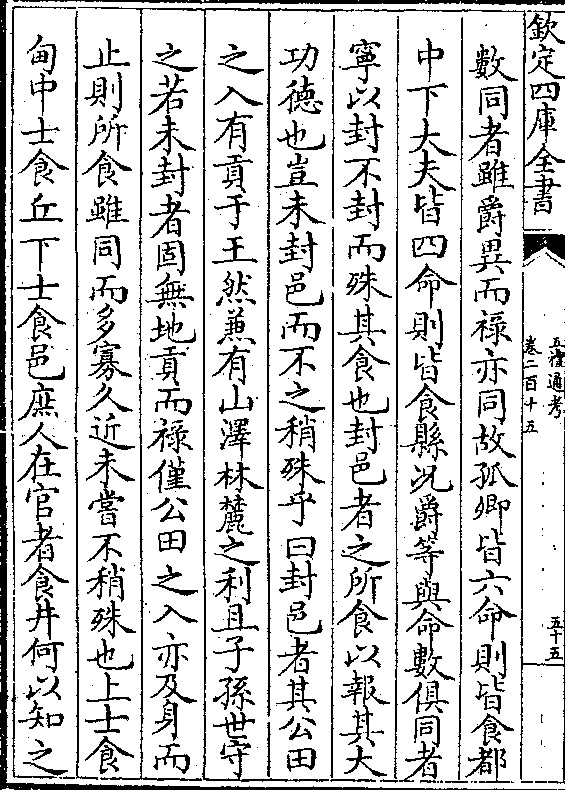 欽定四庫全書
五禮通考
卷二百十五
五十五
數同者雖爵異而祿亦同故孤卿皆六命則皆食都
中下大夫皆四命則皆食縣况爵等與命數俱同者
寧以封不封而殊其食也封邑者之所食以報其大
功德也豈未封邑而不之稍殊乎曰封邑者其公田
之入有貢于王然兼有山澤林麓之利且子孫世守
之若未封者固無地貢而祿僅公田之入亦及身而
止則所食雖同而多寡久近未嘗不稍殊也上士食
甸中士食丘下士食邑庶人在官者食井何以知之